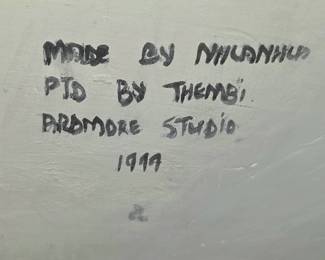 MADE BY NHLANHLA
PTD BY THEMBI.
ARDMORE STUDIO
1999